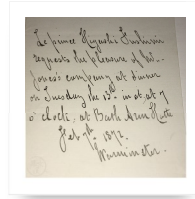 Le prince Higashi Fushimi
requests the pleasure of Mr.
Jones's company at dinner
on Tuesday the 13th inst. at 7
o'clock, at Bath Arms Hotel
Feb. 9th 1872.
Warminster.